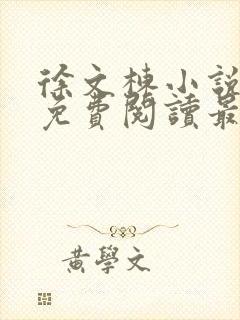 徐文棟小說
免費閱讀最
黃學文